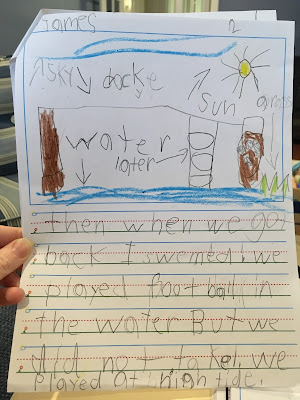 James 2
SKY docke
Sun grass
water
later
then when we got
back I swemed. we
played football in
the water But we
did not takel. we
played at high tide.